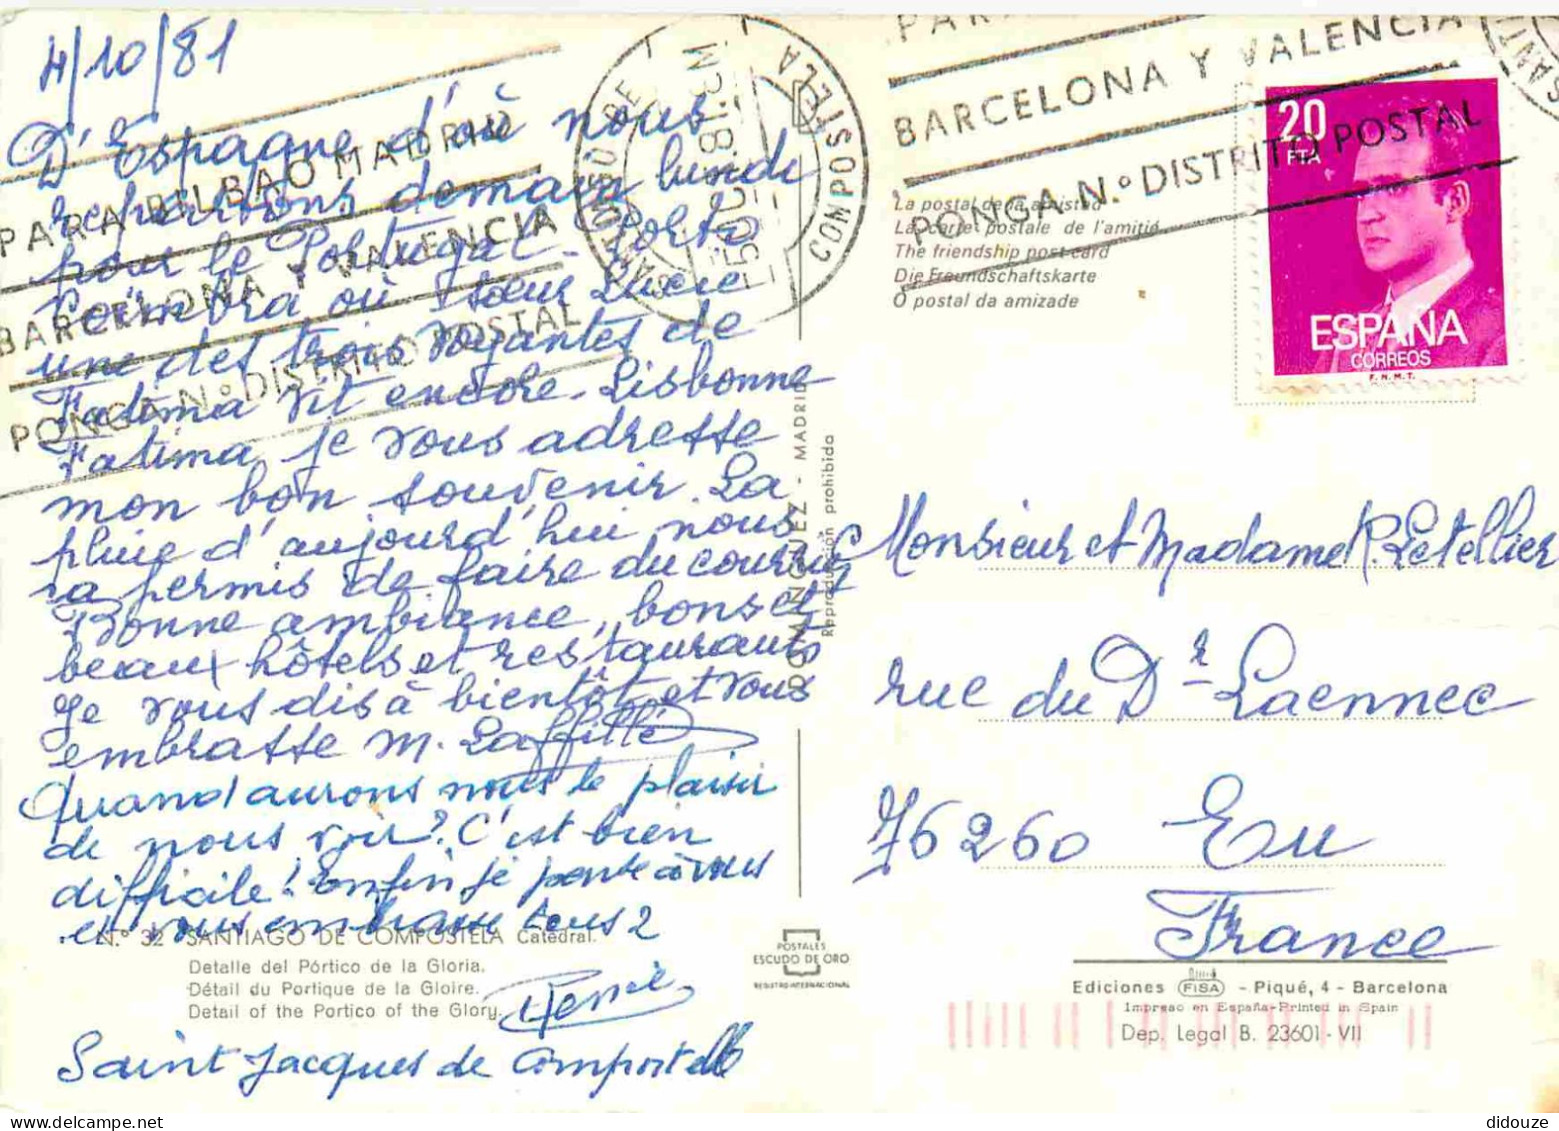 4/10/81
D'Espagne d'où nous
repartons demain lundi
pour le Portugal - Porto
Coïmbra où Soeur Lucie
une des trois voyantes de
Fatima vit encore - Lisbonne
Fatima je vous adresse
mon bon souvenir. La
pluie d'aujourd'hui nous
a permis de faire du courrier
Bonne ambiance, bons et
beaux hôtels et restaurants
Je vous dis à bientôt et vous
embrasse M. Laffillé
Quand aurons nous le plaisir
de nous voir? C'est bien
difficile! Enfin je pense à vous
et vous embrasse tous 2
Renée
Saint Jacques de Compostelle
N.° 32 SANTIAGO DE COMPOSTELA Catedral.
Detalle del Pórtico de la Gloria.
Détail du Portique de la Gloire.
Detail of the Portico of the Glory.
PARA BILBAO MADRID
BARCELONA Y VALENCIA
PONGA N.° DISTRITO POSTAL
SANTIAGO DE COMPOSTELA
DOMINGUEZ - MADRID
Reproducción prohibida
POSTALES
ESCUDO DE ORO
REGISTRO INTERNACIONAL
PARA
BARCELONA Y VALENCIA
PONGA N.° DISTRITO POSTAL
SANT
20
PTA
ESPAÑA
CORREOS
F.N.M.T.
La postal de la amistad
La carte postale de l'amitié
The friendship post card
Die Freundschaftskarte
O postal da amizade
Monsieur et Madame R. Letellier
rue du Dr Laennec
76260 Eu
France
Ediciones FISA - Piqué, 4 - Barcelona
Impreso en España-Printed in Spain
Dep. Legal B. 23601-VII
didouze